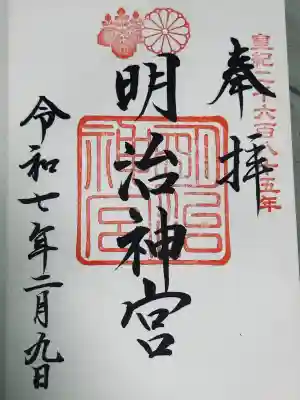 皇紀二千六百八十五年
奉拝
明治神宮
明治神宮
令和七年二月九日